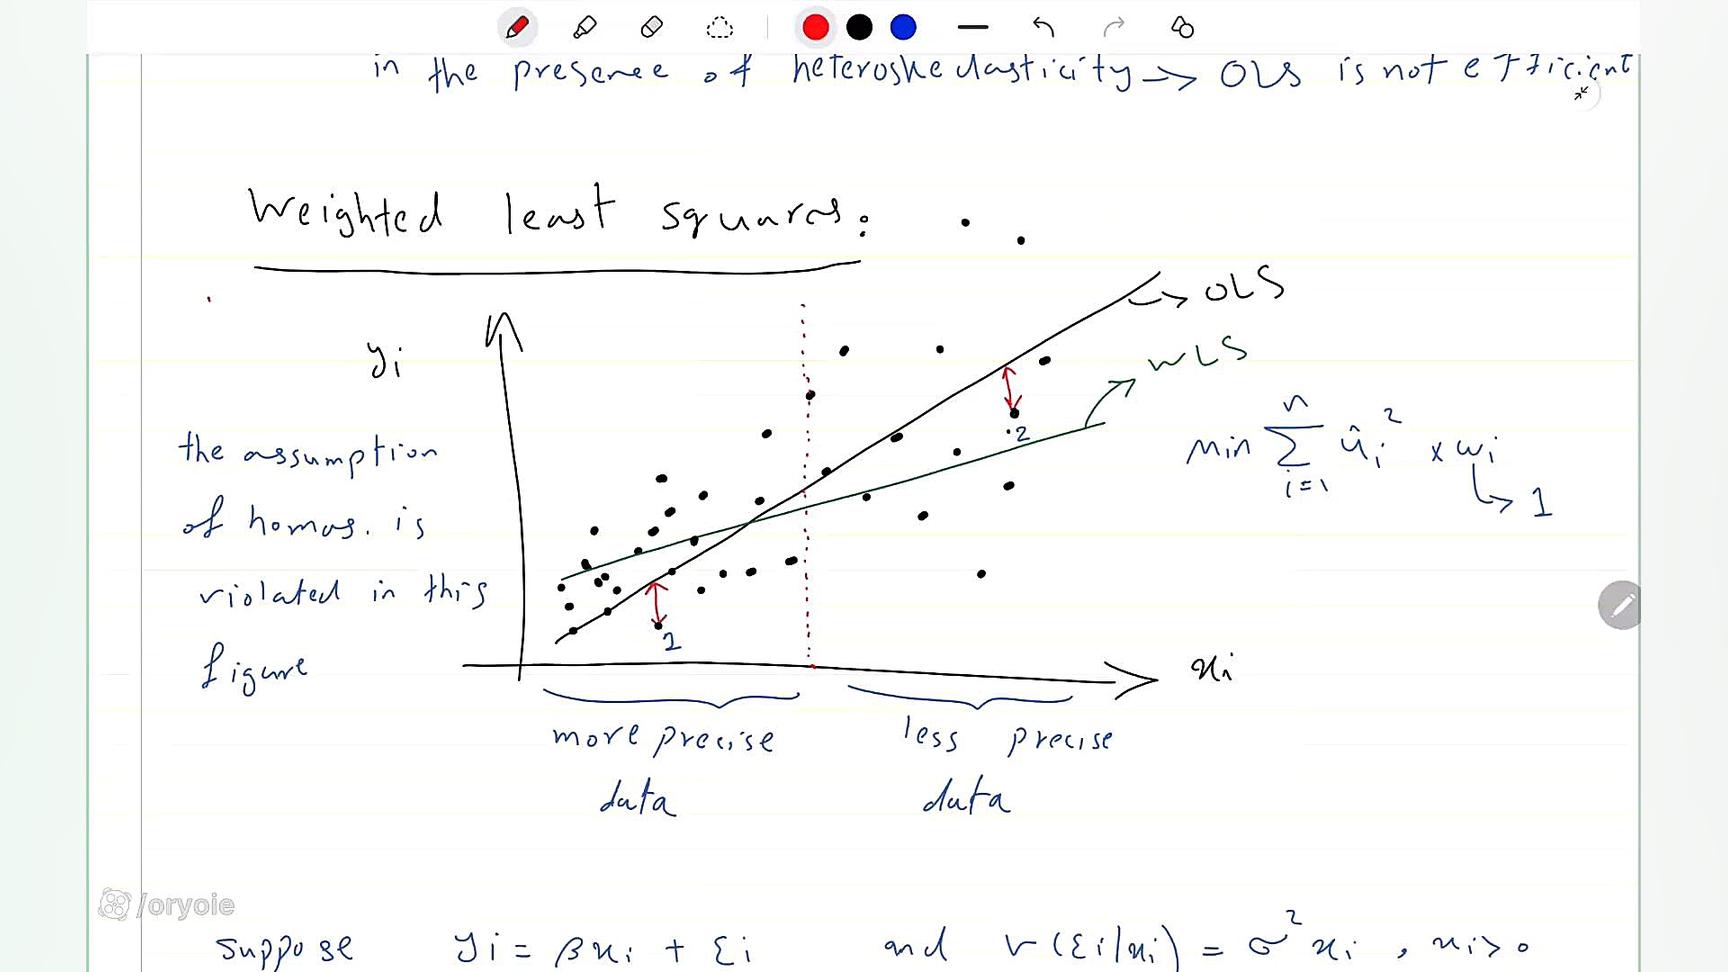 in the presence of heteroskedasticity → OLS is not efficient
Weighted least squares:
yi
→ OLS
WLS
the assumption
of homos. is
violated in this
figure
min Σ i=1 n ûi² × wi
→ 1
2
1
xi
more precise
data
less precise
data
/oryoie
suppose yi = βxi + εi and v(εi|xi) = σ² xi , xi > 0